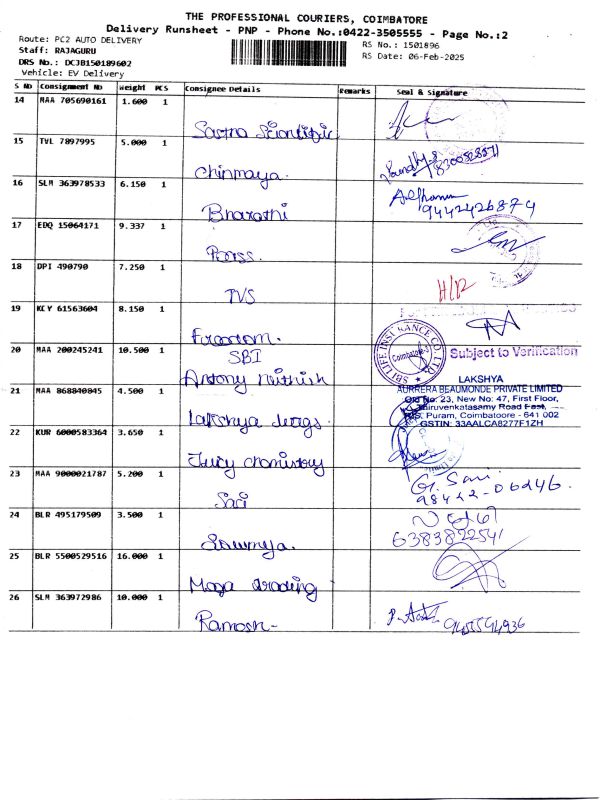 THE PROFESSIONAL COURIERS, COIMBATORE
Delivery Runsheet - PNP - Phone No.:0422-3505555 - Page No.:2
Route: PC2 AUTO DELIVERY
RS No.: 1501896
Staff: RAJAGURU
RS Date: 06-Feb-2025
DRS No.: DCJB150189602
Vehicle: EV Delivery
S NO Consignment No Weight PCS Consignee Details Remarks Seal & Signature
14 MAA 705690161 1.600 1
Sastra Scientific
15 TVL 7897995 5.000 1
8300528571
Chinmaya.
16 SLM 363978533 6.150 1
9442426874
Bharathi
17 EDQ 15064171 9.337 1
18 DPI 490790 7.250 1
TVS
19 KCY 61563604 8.150 1
Freedom.
20 MAA 200245241 10.500 1
SBI
SBI LIFE INSURANCE CO. LTD.
Coimbatore
Subject to Verification
Antony Nithish
21 MAA 868840845 4.500 1
LAKSHYA
AURRERA BEAUMONDE PRIVATE LIMITED
Old No: 23, New No: 47, First Floor,
Thiruvenkatasamy Road East,
R.S. Puram, Coimbatoore - 641 002
GSTIN: 33AALCA8277F1ZH
Lakshya
22 KUR 6000583364 3.650 1
Juicy Chemistry
23 MAA 9000021787 5.200 1
98422-06246.
24 BLR 495179509 3.500 1
6383822541
Sowmya.
25 BLR 5500529516 16.000 1
Trading
26 SLM 363972986 10.000 1
Ramesh